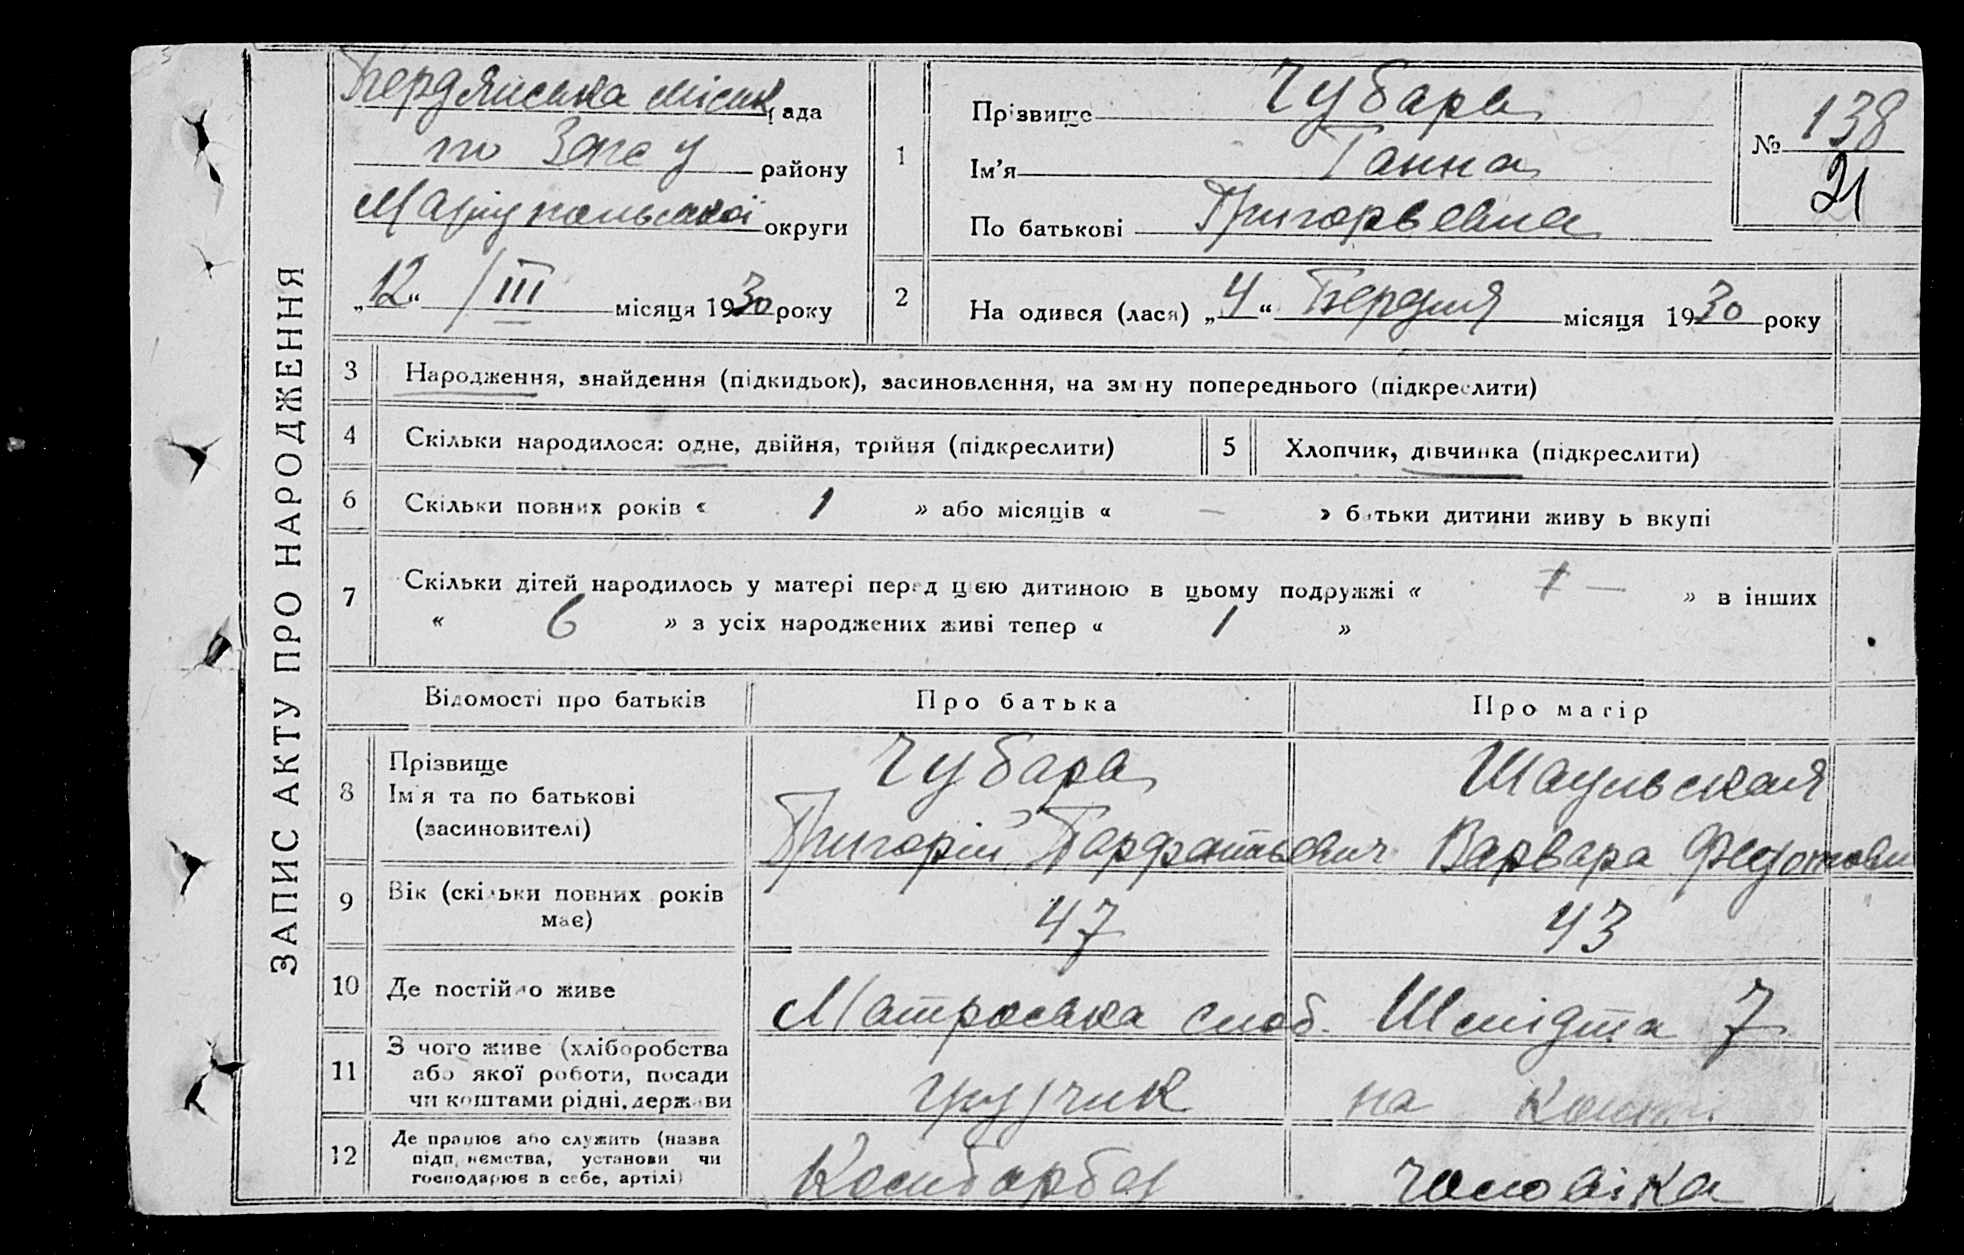 ЗАПИС АКТУ ПРО НАРОДЖЕННЯ
Бердянська міськ рада
по Загсу району
Маріупольської округи
„12“ /III місяця 1930 року
1
Прізвище Чубара
Ім’я Ганна
По батькові Григорьевна
№ 138
21
2
На одився (лася) „4“ Березня місяця 1930 року
3 Народження, знайдення (підкидьок), засиновлення, на зміну попереднього (підкреслити)
4 Скільки народилося: одне, двійня, трійня (підкреслити)
5 Хлопчик, дівчинка (підкреслити)
6 Скільки повних років « 1 » або місяців « — » батьки дитини живуть вкупі
7 Скільки дітей народилось у матері перед цією дитиною в цьому подружжі « — » в інших
« 6 » з усіх народжених живі тепер « 1 »
Відомості про батьків Про батька Про матір
8 Прізвище
Ім'я та по батькові
(засиновителі)
Чубара
Григорій
Варвара
9 Вік (скільки повних років
має)
47 43
10 Де постійно живе
Матроська слоб. Шмідта 7
11 З чого живе (хліборобства
або якої роботи, посади
чи коштами рідні, держави
грузчик на кошті
12 Де працює або служить (назва
підприємства, установи чи
господарює в себе, артілі)
чоловіка